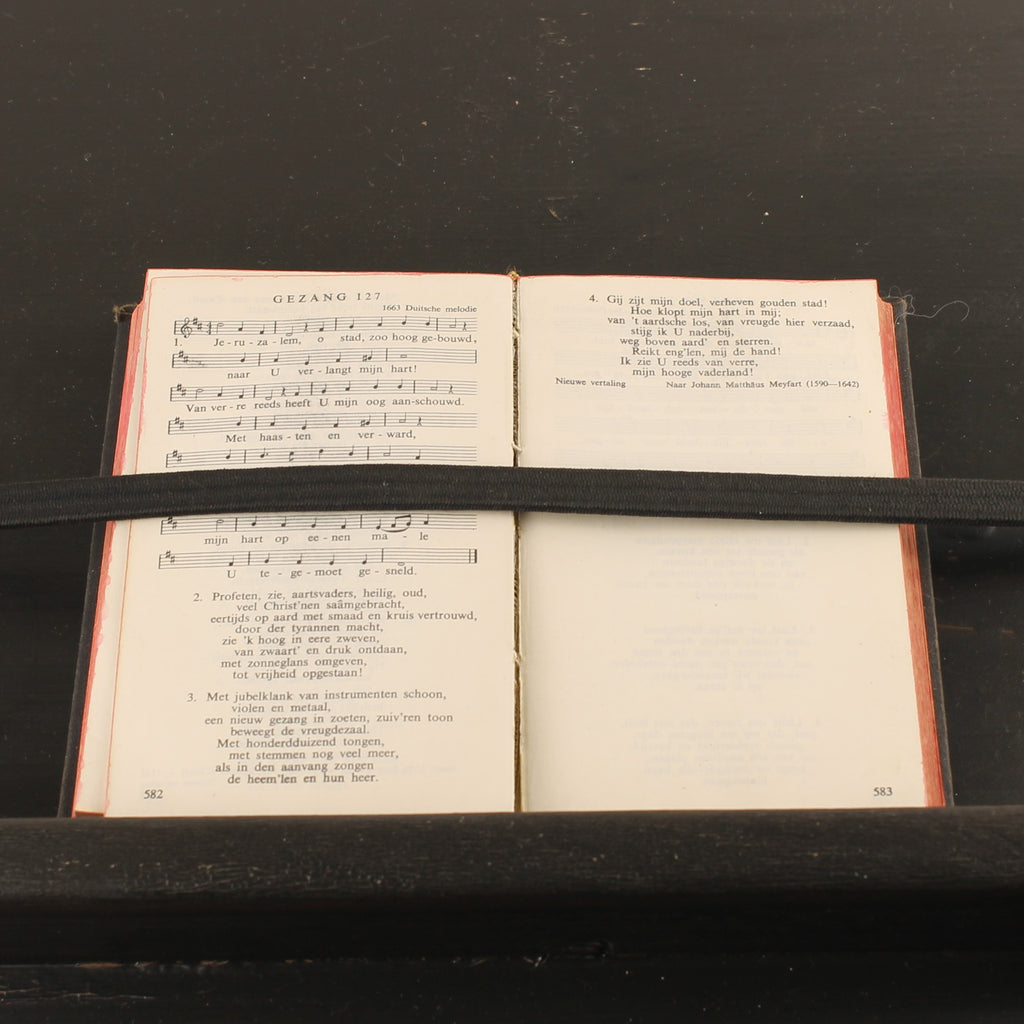 GEZANG 127
1663 Duitsche melodie
1. Je-ru-za-lem, o stad, zoo hoog ge-bouwd,
naar U ver-langt mijn hart!
Van ver-re reeds heeft U mijn oog aan-schouwd.
Met haas-ten en ver-ward,
mijn hart op ee-nen ma-le
U te-ge-moet ge-sneld.
2. Profeten, zie, aartsvaders, heilig, oud,
veel Christ'nen saâmgebracht,
eertijds op aard met smaad en kruis vertrouwd,
door der tyrannen macht,
zie 'k hoog in eere zweven,
van zwaart' en druk ontdaan,
met zonneglans omgeven,
tot vrijheid opgestaan!
3. Met jubelklank van instrumenten schoon,
violen en metaal,
een nieuw gezang in zoeten, zuiv'ren toon
beweegt de vreugdezaal.
Met honderdduizend tongen,
met stemmen nog veel meer,
als in den aanvang zongen
de heem'len en hun heer.
582
4. Gij zijt mijn doel, verheven gouden stad!
Hoe klopt mijn hart in mij;
van 't aardsche los, van vreugde hier verzaad,
stijg ik U naderbij,
weg boven aard' en sterren.
Reikt eng'len, mij de hand!
Ik zie U reeds van verre,
mijn hooge vaderland!
Nieuwe vertaling Naar Johann Matthäus Meyfart (1590—1642)
583